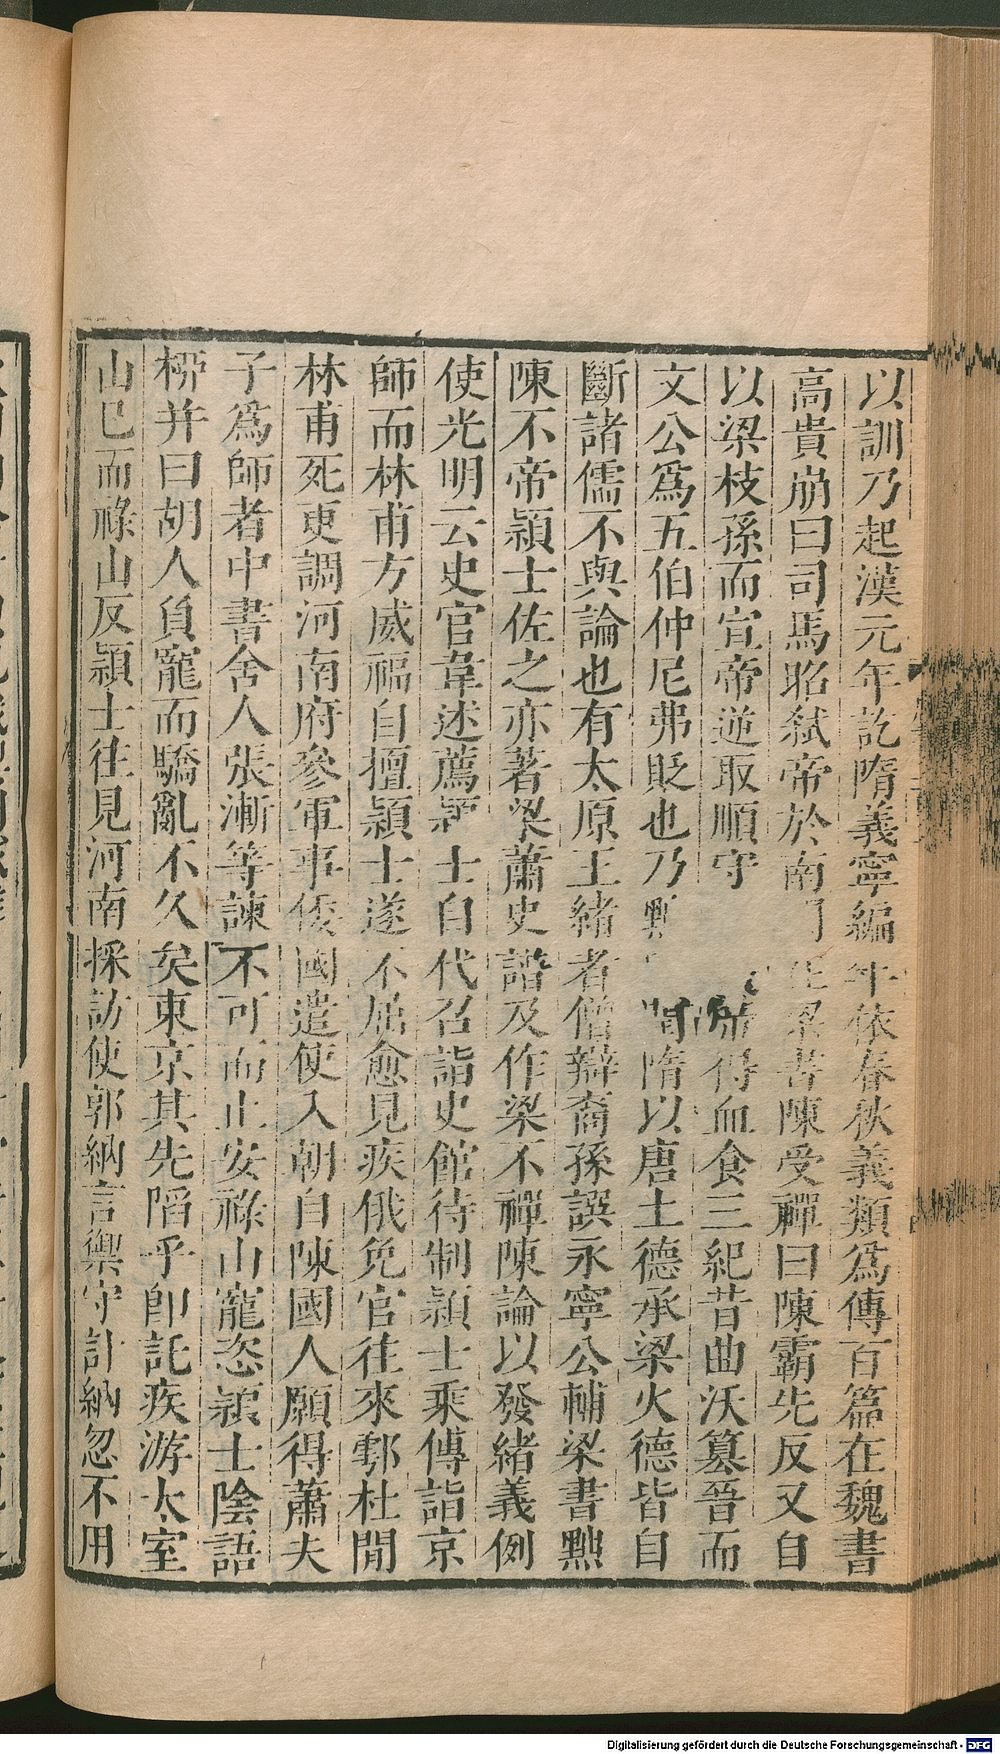 以訓乃起漢元年訖隋義寧編年依春秋義類爲傳百篇在魏書
高貴崩曰司馬昭弒帝於南 梁書陳受禪曰陳霸先反又自
以梁枝孫而宣帝逆取順守 帝得血食三紀昔曲沃篡晉而
文公爲五伯仲尼弗貶也乃 閏隋以唐土德承梁火德皆自
斷諸儒不與論也有太原王緒者僧辯裔孫譔永寧公輔梁書黜
陳不帝穎士佐之亦著梁蕭史譜及作梁不禪陳論以發緒義例
使光明云史官韋述薦穎士自代召詣史館待制穎士乘傳詣京
師而林甫方威福自擅穎士遂不屈愈見疾俄免官往來鄠杜閒
林甫死更調河南府參軍事倭國遣使入朝自陳國人願得蕭夫
子爲師者中書舍人張漸等諫不可而止安祿山寵恣穎士陰語
栁并曰胡人負寵而驕亂不久矣東京其先陷乎卽託疾游太室
山已而祿山反穎士往見河南採訪使郭納言禦守計納忽不用
Digitalisierung gefördert durch die Deutsche Forschungsgemeinschaft - DFG